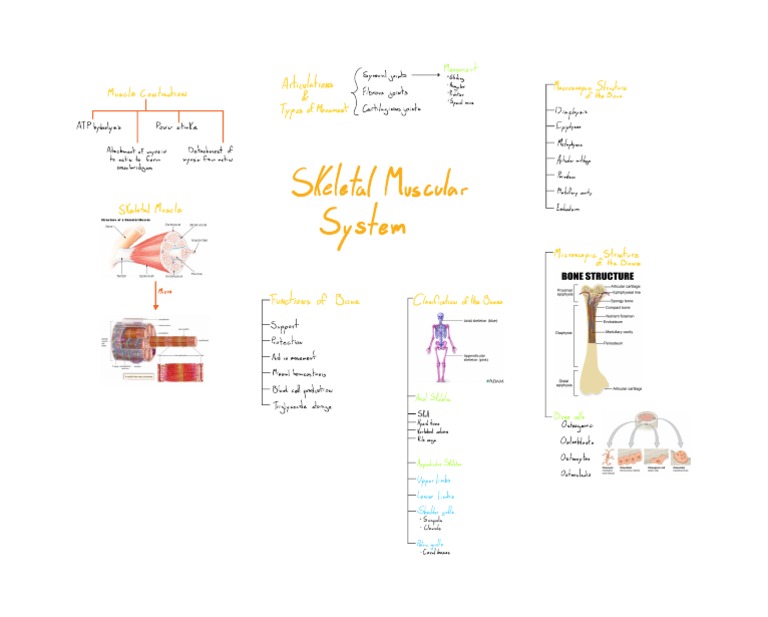 Muscle Contractions
ATP hydrolysis
Power stroke
Attachment of myosin
to actin to form
crossbridges
Detachment of
myosin from actin
Skeletal Muscle
Structure of a Skeletal Muscle
Articulations
&
Types of Movement
Synovial joints
Fibrous joints
Cartilaginous joints
Movement
Gliding
Angular
Rotation
Special
Skeletal Muscular
System
Macroscopic Structure
of the Bone
Diaphysis
Epiphyses
Metaphyses
Articular cartilage
Periosteum
Medullary cavity
Endosteum
Functions of Bone
Support
Protection
Aid in movement
Mineral homeostasis
Blood cell production
Triglyceride storage
Classification of the Bones
Axial skeleton (blue)
Appendicular
skeleton (pink)
Axial Skeleton
Skull
Hyoid bone
Vertebral column
Rib cage
Appendicular Skeleton
Upper Limbs
Lower Limbs
Shoulder girdle
Scapula
Clavicle
Pelvic girdle
Coxal bones
Microscopic Structure
of the Bones
BONE STRUCTURE
Proximal
epiphysis
Diaphysis
Distal
epiphysis
Articular cartilage
Epiphyseal line
Spongy bone
Compact bone
Nutrient foramen
Endosteum
Medullary cavity
Periosteum
Articular cartilage
Bone cells
Osteogenic
Osteoblasts
Osteocytes
Osteoclasts